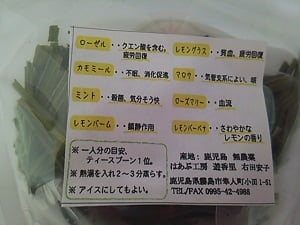 ローゼル・・クエン酸を含む。
疲労回復
レモングラス・・貧血、疲労回復
カモミール・・不眠、消化促進
マロウ・・気管支系によい、咳
ミント・・殺菌、気分そう快
ローズマリー・・血流
レモンバーム・・鎮静作用
レモンバーベナ・・さわやかな
レモンの香り
※一人分の目安、
ティースプーン1位。
※熱湯を入れ2~3分蒸らす。
※アイスにしてもよい。
産地:鹿児島 無農薬
はあぶ工房 遊香里 右田安子
鹿児島県霧島市隼人町小田1-51
TEL/FAX 0995-42-4988